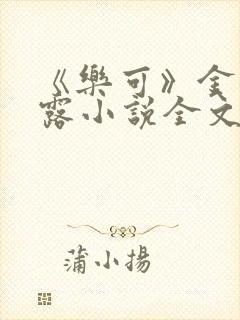 《樂可》金
露小說全文
蒲小揚